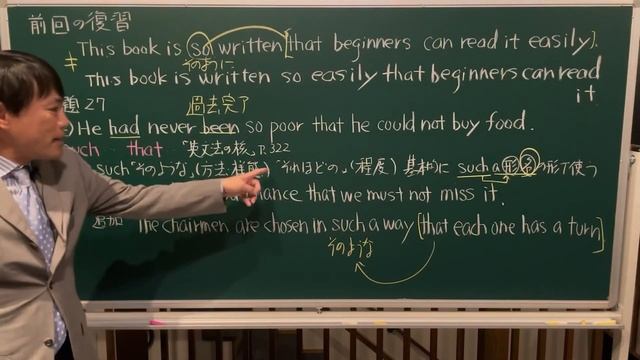 前回の復習
This book is so written [that beginners can read it easily].
そのように
≠
This book is written so easily that beginners can read it
題27
過去完了
He had never been so poor that he could not buy food.
such that 「英文法の核」P.322
such「そのような」(方法・様態)「それほどの」(程度) 基本的に such a 形名の形で使う
chance that we must not miss it.
追加 The chairmen are chosen in such a way [that each one has a turn]
そのような